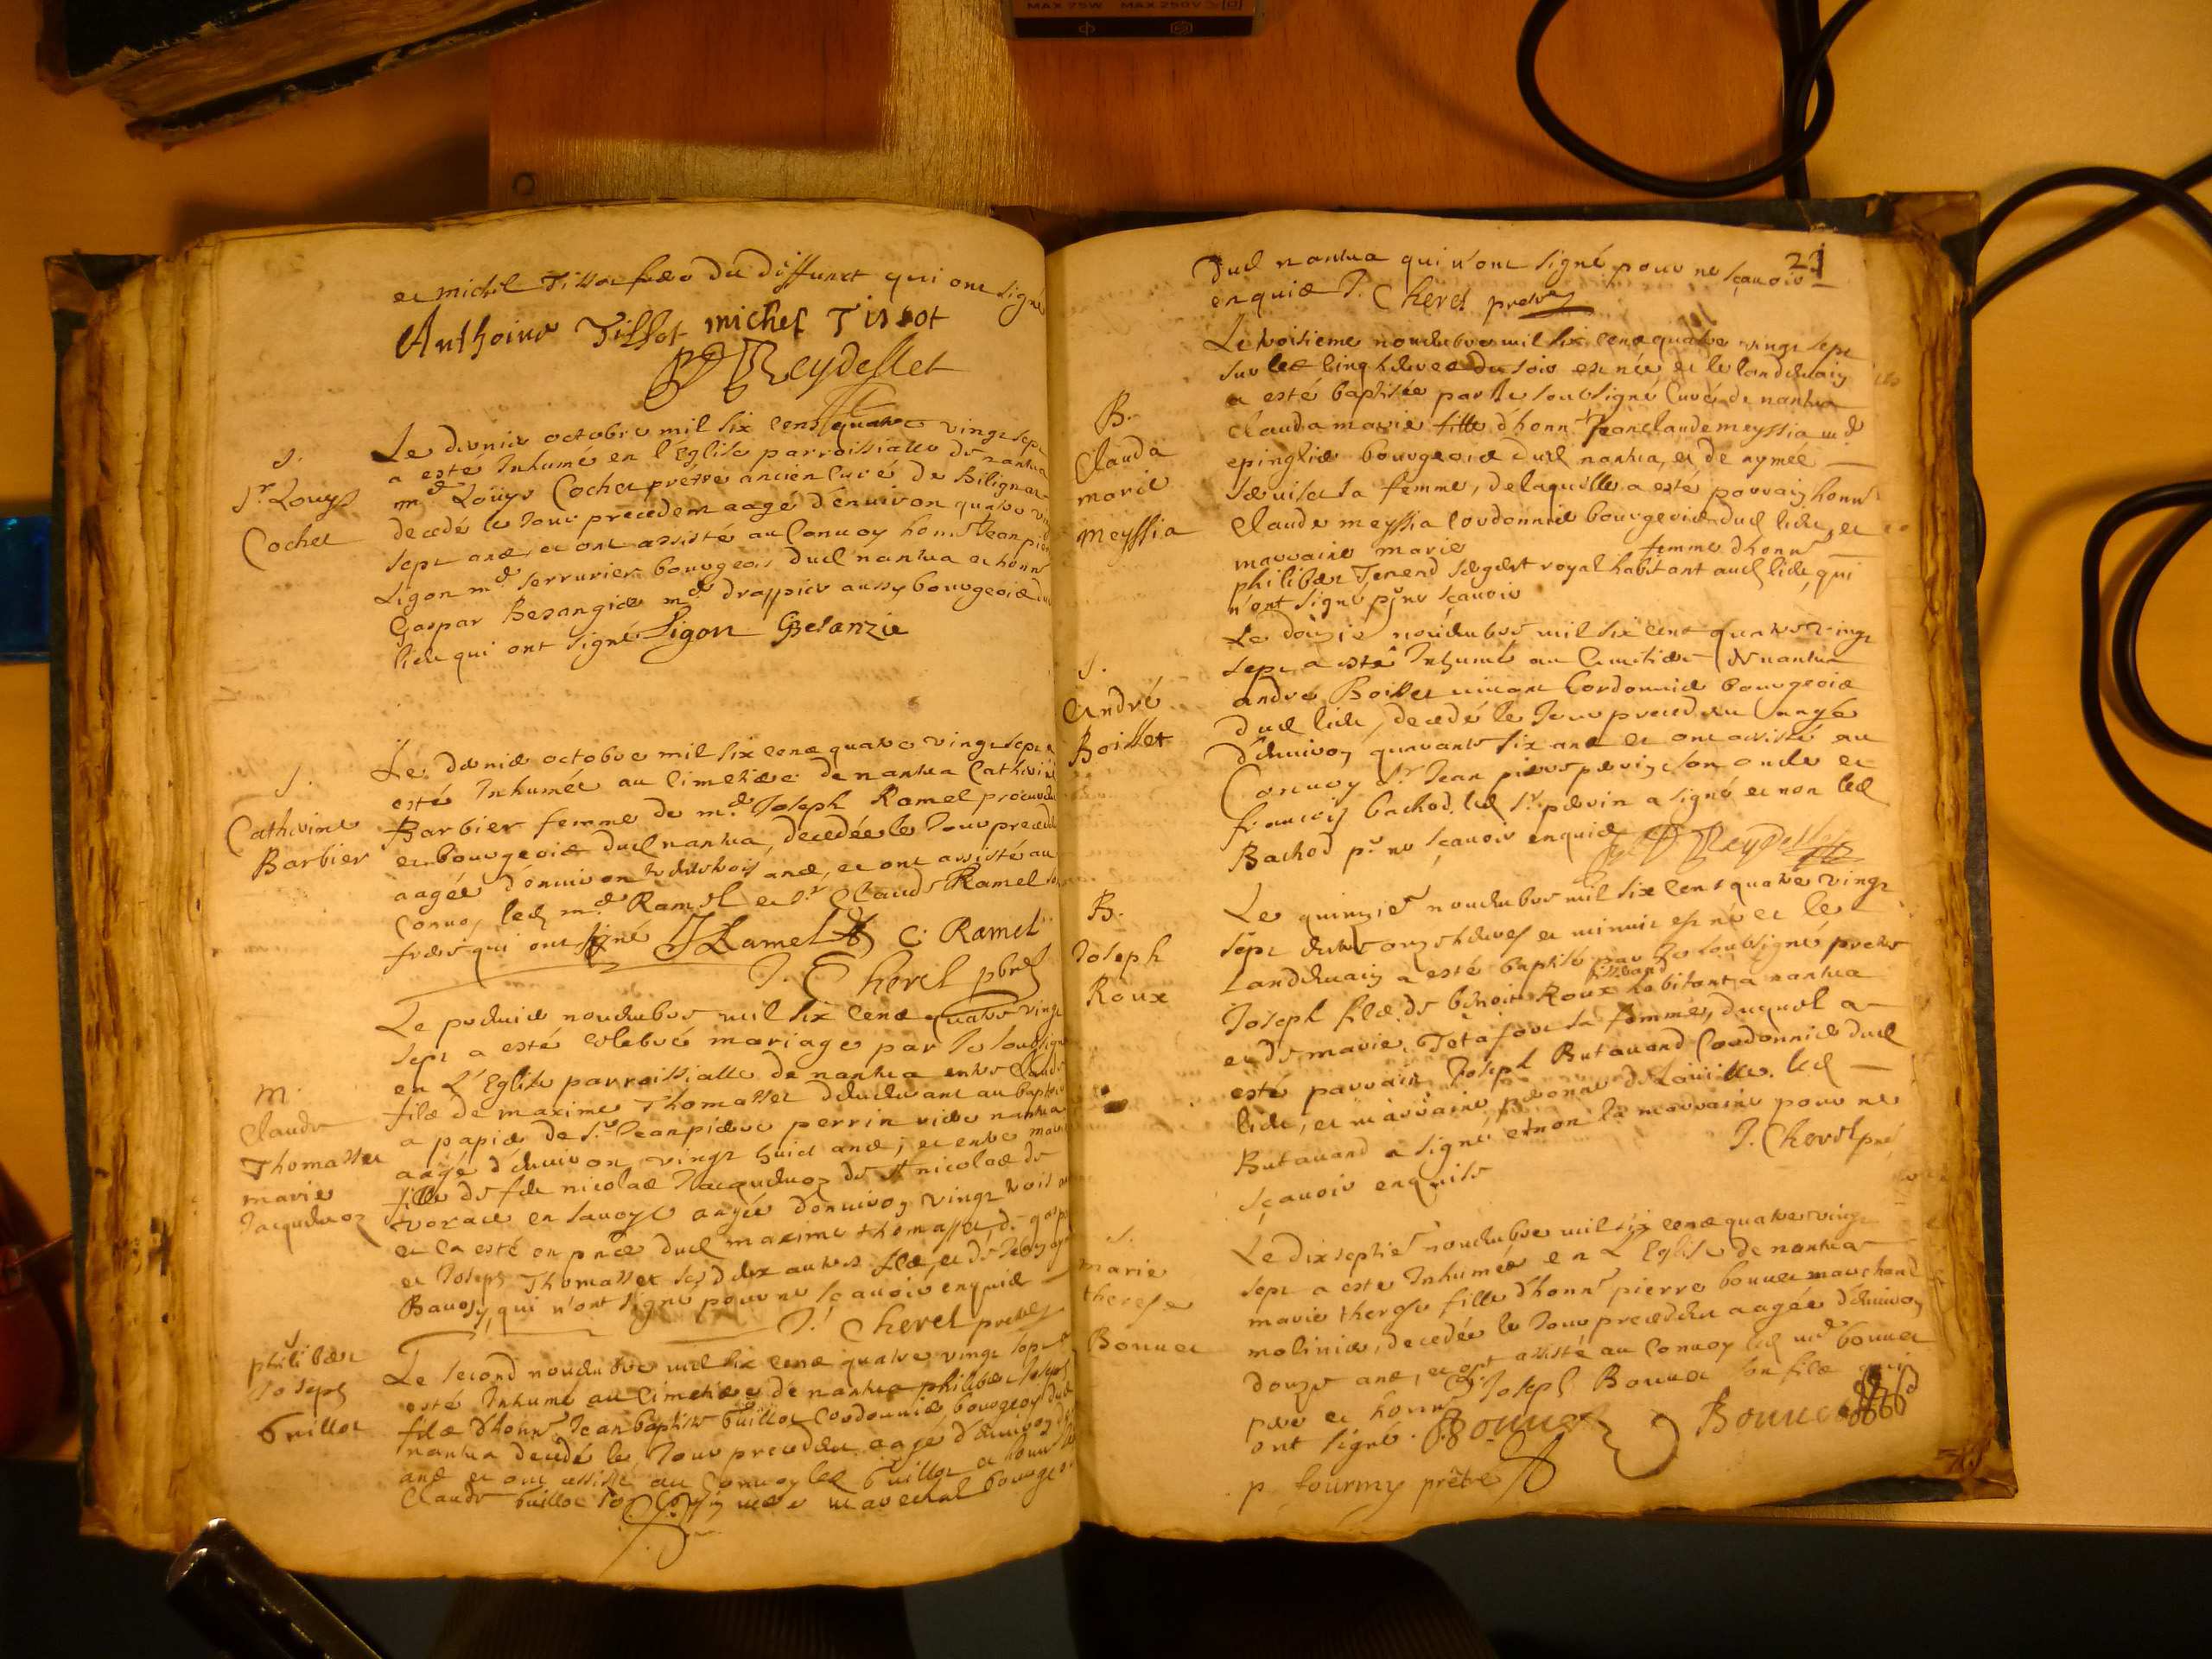 MAX 75W MAX 250V
et michel Tissot frere du deffunct qui ont signé
Anthoine Tissot michel Tissot
Reydellet
S.
Sr Louys
Cochet
Le dernier octobre mil six cens quatre vingt sept
a esté Inhumé en l'Eglise parroissialle de nantua
mre Louys Cochet prêtre ancien curé de Bilignat
decedé le Jour precedent aagé d'environ quatre vingt
sept ans, et ont assisté au Convoy honn Jean pierre
Ligon md serrurier bourgeois dud nantua et honn
Gaspar Besangier md drappier aussy bourgeois dud
lieu qui ont signé Ligon GBesanzie
S.
Catherine
Barbier
Le dernier octobre mil six cens quatre vingt sept a
esté Inhumée au cimetiere de nantua Catherine
Barbier femme de me Joseph Ramel procureur
et bourgeois dud nantua, decedée le Jour precedent
aagée d'environ ans, et ont assisté au
Convoy led me Ramel et Sr Claude Ramel son
frere qui ont signé JRamel C. Ramel
J. Cherel pbre
M.
Claude
Thomasset
marie
Jacquemoz
Le premier novembre mil six cens quatre vingt
sept a esté celebré mariage par Je soubsigné
en L'Eglise parroissialle de nantua entre Claude
fils de maxime Thomasset demeurant au
a papier de Sr Jean pierre perrin rier nantua
aagé d'environ vingt huict ans; et entre marie
fille de feu nicolas Jacquemoz de St nicolas de
veroce en savoye aagée d'environ vingt trois ans
et ca esté en pnce dud maxime thomasset, de
et Joseph Thomasset ses deux autres fils, et de
Bavoz, qui n'ont signé pour ne sçavoir enquis
J. Cherel pretre
S
philibert
Joseph
Guillot
Le second novembre mil six cens quatre vingt sept a
esté Inhumé au cimetiere de nantua philibert Joseph
fils d'honn Jean baptiste Guillot Cordonnier bourgeois dud
nantua decedé le Jour precedent aagé d'environ
ans et ont assisté au Convoy led Guillot et honn
Claude Guillot son marechal bourgeois
21
dud nantua qui n'ont signé pour ne sçavoir
enquis J. Cherel pretre
B.
Clauda
marie
Meyssia
Le troisieme novembre mil six cens quatre vingt sept
sur les cinq heures du soir est née et le landemain
a esté baptisée par Je soubsigné Curé de nantua
Clauda marie fille d'honn Jean claude meyssia md
epinglier bourgeois dud nantua, et de aymee
sa femme, de laquelle a esté parrain honn
Claude meyssia Cordonnier bourgeois dud lieu, et
marraine marie femme d'honn
philibert Tenend sergent royal habitant aud lieu, qui
n'ont signé pr ne sçavoir
S.
André
Boisset
Le douzie novembre mil six cent quatre vingt
sept a esté Inhumé au Cimetiere de nantua
andré Boisset vivant Cordonnier bourgeois
dud lieu, decedé le Jour precedent aagé
d'environ quarante six ans et ont assisté au
Convoy Sr Jean pierre perrin son oncle et
francois bachod. led Sr perrin a signé et non led
Bachod pr ne sçavoir enquis Reydellet
B.
Joseph
Roux
Le quinzie novembre mil six cens quatre vingt
sept entre onze heures et minuit est né et le
landemain a esté baptisé par Je soubsigné pretre
Joseph fils de benoit Roux tisserand habitant a nantua
et de marie Tetafort sa femme, duquel a
esté parrain Joseph Butavand Cordonnier dud
lieu, et marraine peronne de Laville. led
Butavand a signé et non la marraine pour ne
sçavoir enquise J. Cherel pre
S.
marie
therese
Bonnet
Le dix septie novembre mil six cens quatre vingt
sept a esté Inhumée en L'Eglise de nantua
marie therese fille d'honn pierre bonnet marchand
molinier, decedée le Jour precedent aagée d'environ
douze ans, et ont assisté au Convoy led md bonnet
pere et honn Joseph Bonnet son fils qui
ont signé. Bonnet Bonnet
p. fourny prêtre